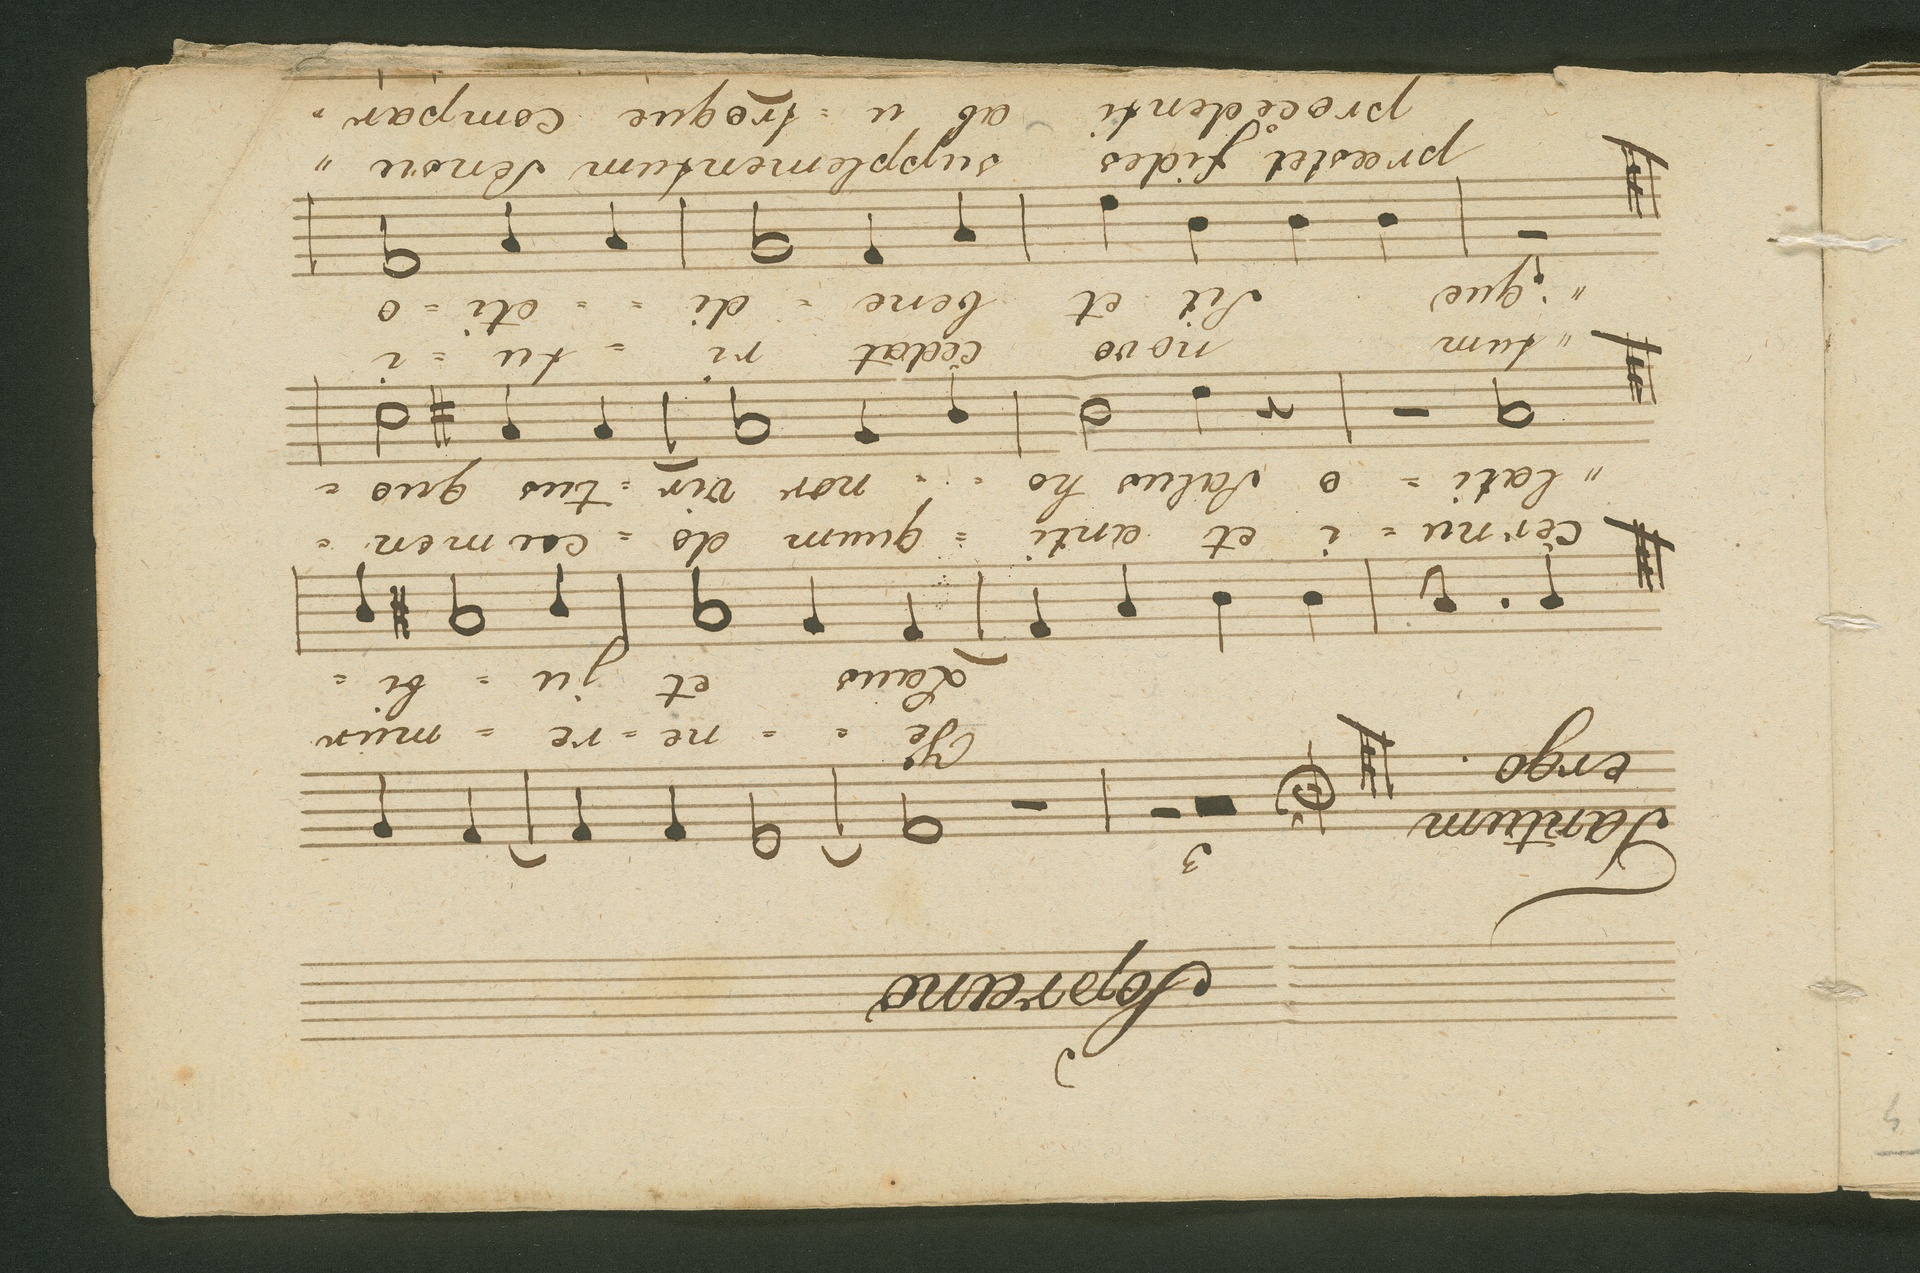 Soprano
3
Tantum
ergo.
Ge = = ne = re = mur
Laus et ju = bi =
cernu = i et anti = quum do = cu men =
" lati = o Salus ho = = nor vir = tus quo =
" tum novo cedat ri = tu = i
" que Sit et bene = di = = cti = o
præstet fides supplementum Sensu "
procedenti ab u = troque compar =